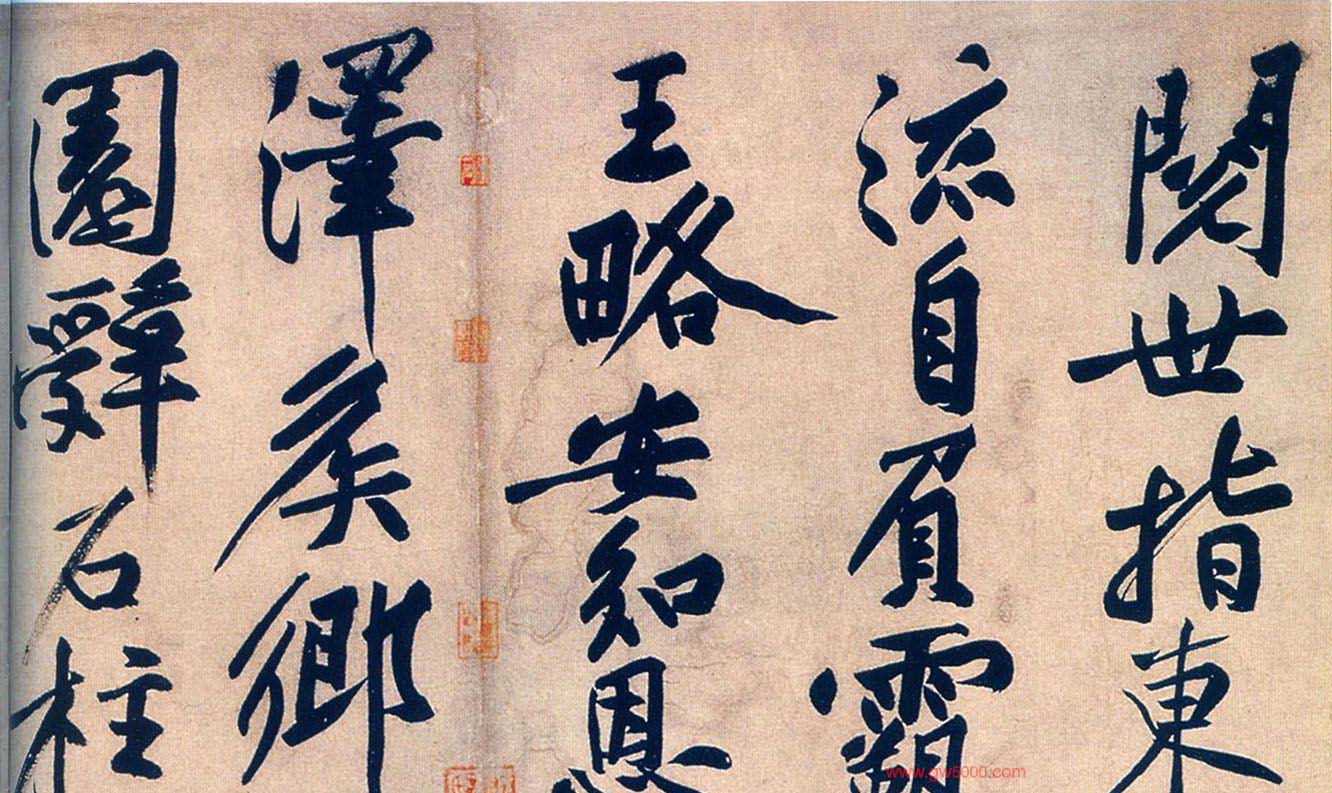 閱世指東
流自負霸
王略安知恩
澤侯鄉
園辭石柱
www.gw5000.com